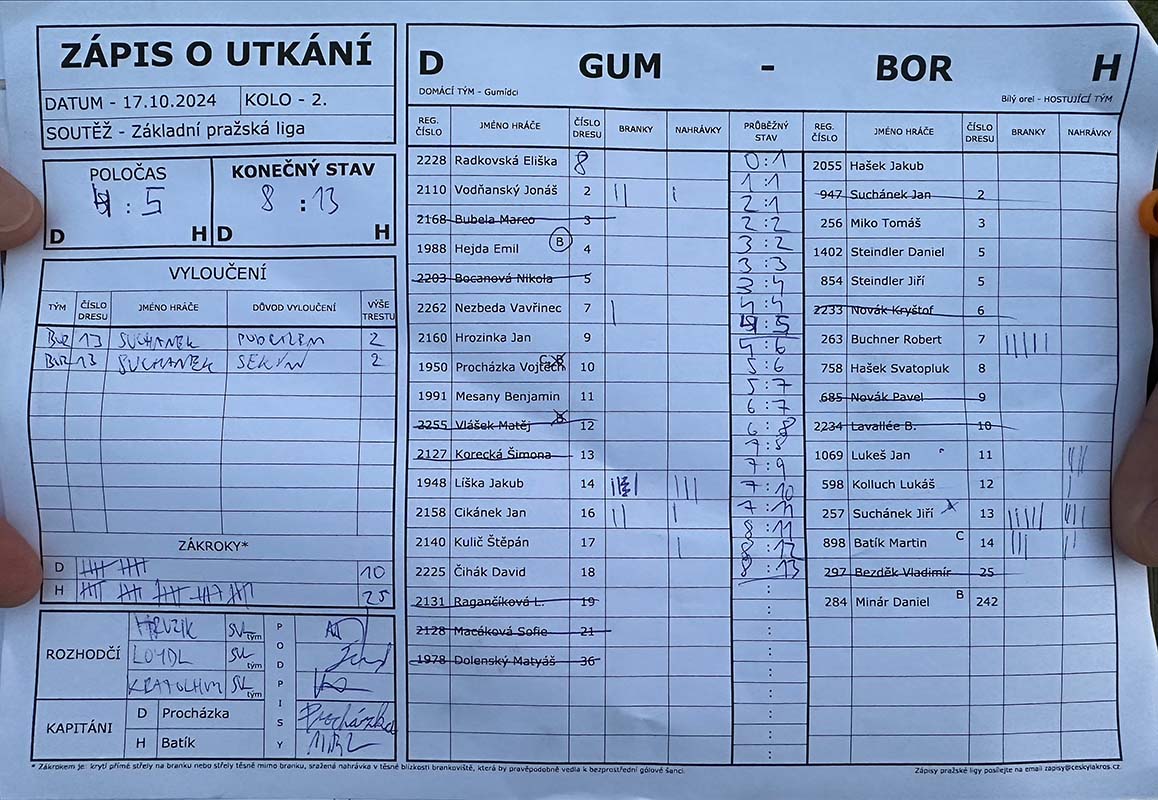 ZÁPIS O UTKÁNÍ
DATUM - 17.10.2024 KOLO - 2.
SOUTĚŽ - Základní pražská liga
POLOČAS KONEČNÝ STAV
4 : 5 8 : 13
D H D H
VYLOUČENÍ
TÝM ČÍSLO DRESU JMÉNO HRÁČE DŮVOD VYLOUČENÍ VÝŠE TRESTU
BOR 13 SUCHANEK PODRAZEM 2
BOR 13 SUCHANEK SEKYN 2
ZÁKROKY*
D 10
H 25
ROZHODČÍ
HRUZIK SU tým
LOMDL SU tým
SU tým
PODPISY
KAPITÁNI
D Procházka Procházka
H Batík
D GUM - BOR H
DOMÁCÍ TÝM - Gumídci Bílý orel - HOSTUJÍCÍ TÝM
REG. ČÍSLO JMÉNO HRÁČE ČÍSLO DRESU BRANKY NAHRÁVKY PRŮBĚŽNÝ STAV REG. ČÍSLO JMÉNO HRÁČE ČÍSLO DRESU BRANKY NAHRÁVKY
2228 Radkovská Eliška 8 0:1 2055 Hašek Jakub
2110 Vodňanský Jonáš 2 || | 1:1 947 Suchánek Jan 2
2168 Bubela Marco 3 2:1 256 Miko Tomáš 3
1988 Hejda Emil B 4 2:2 1402 Steindler Daniel 5
2203 Bocanová Nikola 5 3:2 854 Steindler Jiří 5
2262 Nezbeda Vavřinec 7 | 3:3 2233 Novák Kryštof 6
2160 Hrozinka Jan 9 3:4 263 Buchner Robert 7 |||||
1950 Procházka Vojtěch 10 4:4 758 Hašek Svatopluk 8
1991 Mesany Benjamin 11 4:5 685 Novák Pavel 9
2255 Vlášek Matěj 12 4:6 2234 Lavallée B. 10
2127 Korecká Šimona 13 5:6 1069 Lukeš Jan 11
1948 Líška Jakub 14 ||| 5:7 598 Kolluch Lukáš 12 |
2158 Cikánek Jan 16 || | 6:7 257 Suchánek Jiří 13 |||||
2140 Kulič Štěpán 17 | 6:8 898 Batík Martin C 14 ||| ||
2225 Čihák David 18 7:8 297 Bezděk Vladimír 25
2131 Ragančíková L. 19 7:9 284 Minár Daniel B 242
2128 Macáková Sofie 21 7:10
1978 Dolenský Matyáš 36 7:11
8:11
8:12
8:13
* Zákrokem je: krytí přímé střely na branku nebo střely těsně mimo branku, sražená nahrávka v těsné blízkosti brankoviště, která by pravděpodobně vedla k bezprostřední gólové šanci.
Zápisy pražské ligy posílejte na email zapisy@ceskylakros.cz.